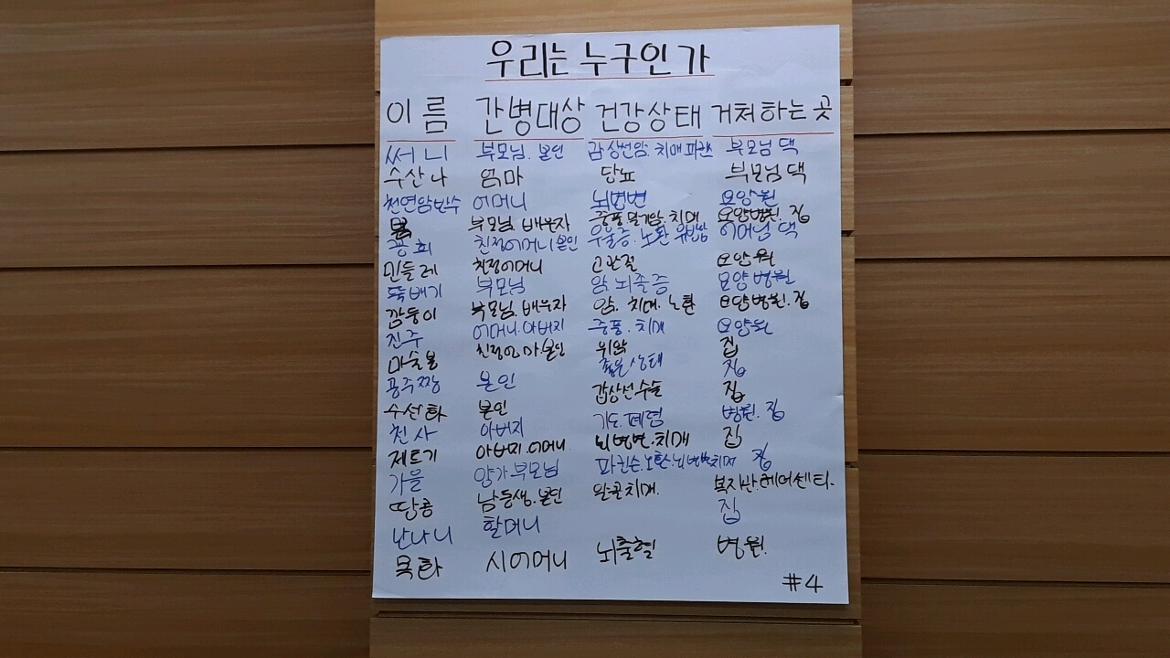 우리는 누구인가
이름 간병대상 건강상태 거처하는 곳
써니 부모님. 본인 갑상선암. 치매 파킨슨 부모님 댁
수산나 엄마 당뇨 부모님댁
천연암반수 어머니 뇌병변 요양원
봄 부모님. 배우자 중풍 말기암. 치매 요양병원. 집
공희 친정어머니 본인 우울증. 노환 유방암 어머님 댁
민들레 친정어머니 고관절 요양원
뚝배기 부모님 암. 뇌졸증 요양병원
깜둥이 부모님. 배우자 암. 치매. 노환 요양병원. 집
진주 어머니. 아버지 중풍. 치매 요양원
마술봉 친정엄마. 본인 위암 집
공주짱 본인 좋은상태 집
수선화 본인 갑상선수술 집
천사 아버지 기도. 폐렴 병원. 집
제트기 아버지. 어머니 뇌병변. 치매 집
가을 양가부모님 파킨슨. 노환. 뇌병변 치매 집
땅콩 남동생. 본인 치매. 복지관. 케어센터.
난나니 할머니 집
목화 시어머니 뇌출혈 병원.
#4